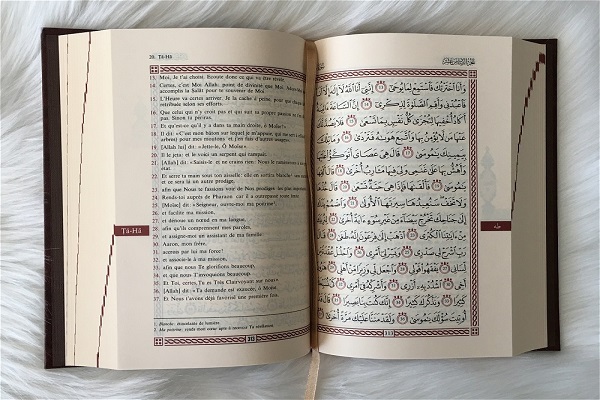 20. Tâ-Hâ
13. Moi, Je t'ai choisi. Ecoute donc ce qui va être révélé.
14. Certes, c'est Moi Allah: point de divinité que Moi.
accomplis la Salât pour te souvenir de Moi.
15. L'Heure va certes arriver. Je la cache à peine, pour que
rétribuée selon ses efforts.
16. Que celui qui n'y croit pas et qui suit sa propre passion ne
pas. Sinon tu périras.
17. Et qu'est-ce qu'il y a dans ta main droite, ô Moïse?»
18. Il dit: «C'est mon bâton sur lequel je m'appuie, qui me sert à
arbres) pour mes moutons et j'en fais d'autres usages».
19. [Allah lui] dit: «Jette-le, Ô Moïse».
20. Il le jeta: et le voici un serpent qui rampait.
21. [Allah] dit: «Saisis-le et ne crains rien: Nous le ramènerons à
état.
22. Et serre ta main sous ton aisselle: elle en sortira blanche
et ce sera là un autre prodige,
23. afin que Nous te fassions voir de Nos prodiges les plus importants.
24. Rends-toi auprès de Pharaon car il a outrepassé toute limite.
25. [Moïse] dit: «Seigneur, ouvre-moi ma poitrine,
26. et facilite ma mission,
27. et dénoue un nœud en ma langue,
28. afin qu'ils comprennent mes paroles,
29. et assigne-moi un assistant de ma famille:
30. Aaron, mon frère,
31. accrois par lui ma force!
32. et associe-le à ma mission,
33. afin que nous Te glorifions beaucoup,
34. et que nous T'invoquions beaucoup.
35. Et Toi, certes, Tu es Très Clairvoyant sur nous».
36. [Allah] dit: «Ta demande est exaucée, ô Moïse.
37. Et Nous t'avons déjà favorisé une première fois.
Tâ-Hâ
1. Blanche: étincelante de lumière.
2. Ma poitrine: rends mon cœur apte à recevoir Ta révélation.
313
وَأَنَا اخْتَرْتُكَ فَاسْتَمِعْ لِمَا يُوحَىٰ ١٣ إِنَّنِي أَنَا اللَّهُ لَا إِلَٰهَ إِلَّا أَنَا
فَاعْبُدْنِي وَأَقِمِ الصَّلَاةَ لِذِكْرِي ١٤ إِنَّ السَّاعَةَ آتِيَةٌ
أَكَادُ أُخْفِيهَا لِتُجْزَىٰ كُلُّ نَفْسٍ بِمَا تَسْعَىٰ ١٥ فَلَا يَصُدَّنَّكَ
عَنْهَا مَنْ لَا يُؤْمِنُ بِهَا وَاتَّبَعَ هَوَاهُ فَتَرْدَىٰ ١٦ وَمَا تِلْكَ
بِيَمِينِكَ يَا مُوسَىٰ ١٧ قَالَ هِيَ عَصَايَ أَتَوَكَّأُ عَلَيْهَا
وَأَهُشُّ بِهَا عَلَىٰ غَنَمِي وَلِيَ فِيهَا مَآرِبُ أُخْرَىٰ ١٨ قَالَ أَلْقِهَا
يَا مُوسَىٰ ١٩ فَأَلْقَاهَا فَإِذَا هِيَ حَيَّةٌ تَسْعَىٰ ٢٠ قَالَ خُذْهَا
وَلَا تَخَفْ سَنُعِيدُهَا سِيرَتَهَا الْأُولَىٰ ٢١ وَاضْمُمْ يَدَكَ
إِلَىٰ جَنَاحِكَ تَخْرُجْ بَيْضَاءَ مِنْ غَيْرِ سُوءٍ آيَةً أُخْرَىٰ ٢٢ لِنُرِيَكَ
مِنْ آيَاتِنَا الْكُبْرَى ٢٣ اذْهَبْ إِلَىٰ فِرْعَوْنَ إِنَّهُ طَغَىٰ ٢٤ قَالَ
رَبِّ اشْرَحْ لِي صَدْرِي ٢٥ وَيَسِّرْ لِي أَمْرِي ٢٦ وَاحْلُلْ عُقْدَةً مِنْ
لِسَانِي ٢٧ يَفْقَهُوا قَوْلِي ٢٨ وَاجْعَلْ لِي وَزِيرًا مِنْ أَهْلِي ٢٩ هَارُونَ
أَخِي ٣٠ اشْدُدْ بِهِ أَزْرِي ٣١ وَأَشْرِكْهُ فِي أَمْرِي ٣٢ كَيْ نُسَبِّحَكَ
كَثِيرًا ٣٣ وَنَذْكُرَكَ كَثِيرًا ٣٤ إِنَّكَ كُنْتَ بِنَا بَصِيرًا ٣٥ قَالَ قَدْ
أُوتِيتَ سُؤْلَكَ يَا مُوسَىٰ ٣٦ وَلَقَدْ مَنَنَّا عَلَيْكَ مَرَّةً أُخْرَىٰ ٣٧
طه
٣١٣